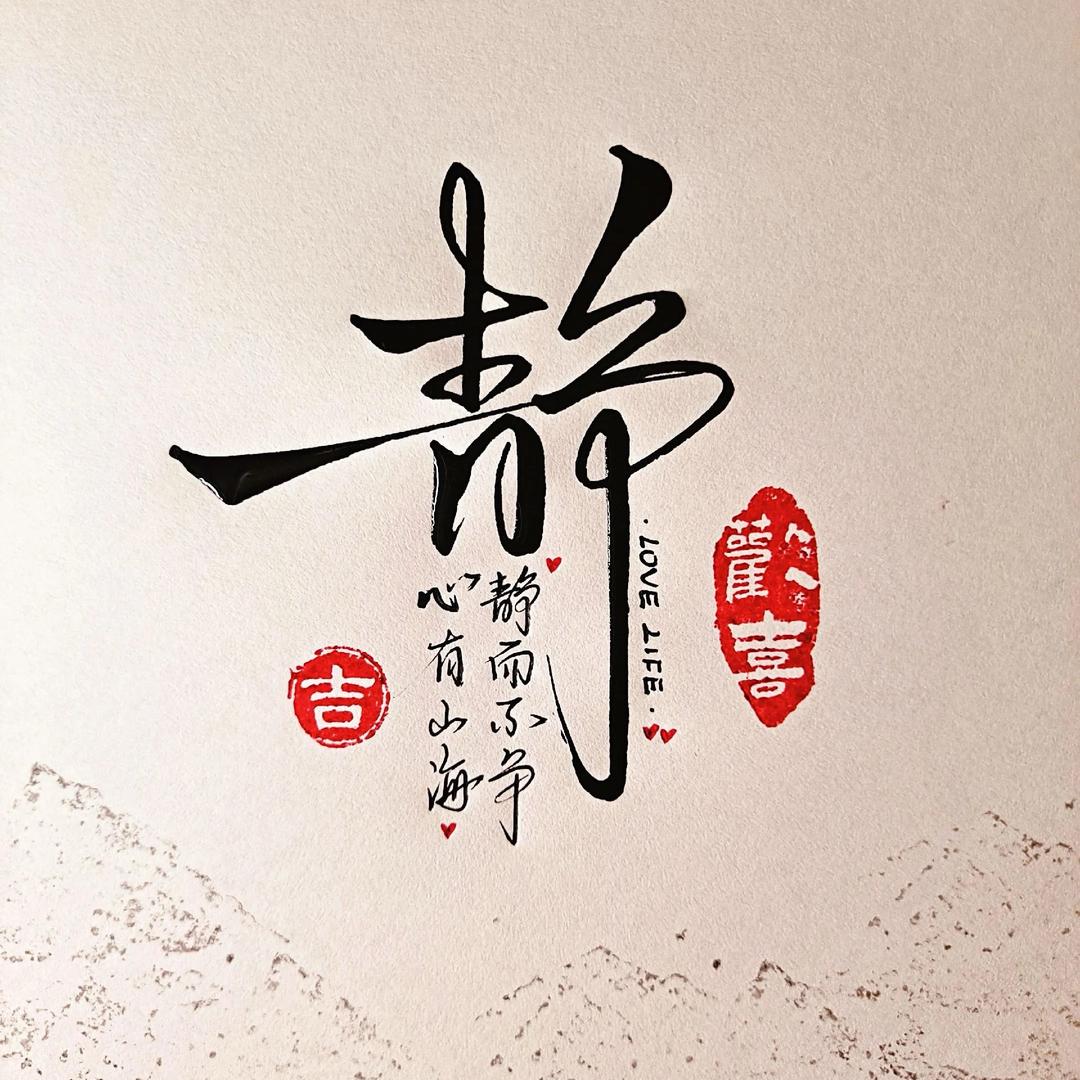 静
静而不争
心有山海
·LOVE LIFE·
歡喜
吉